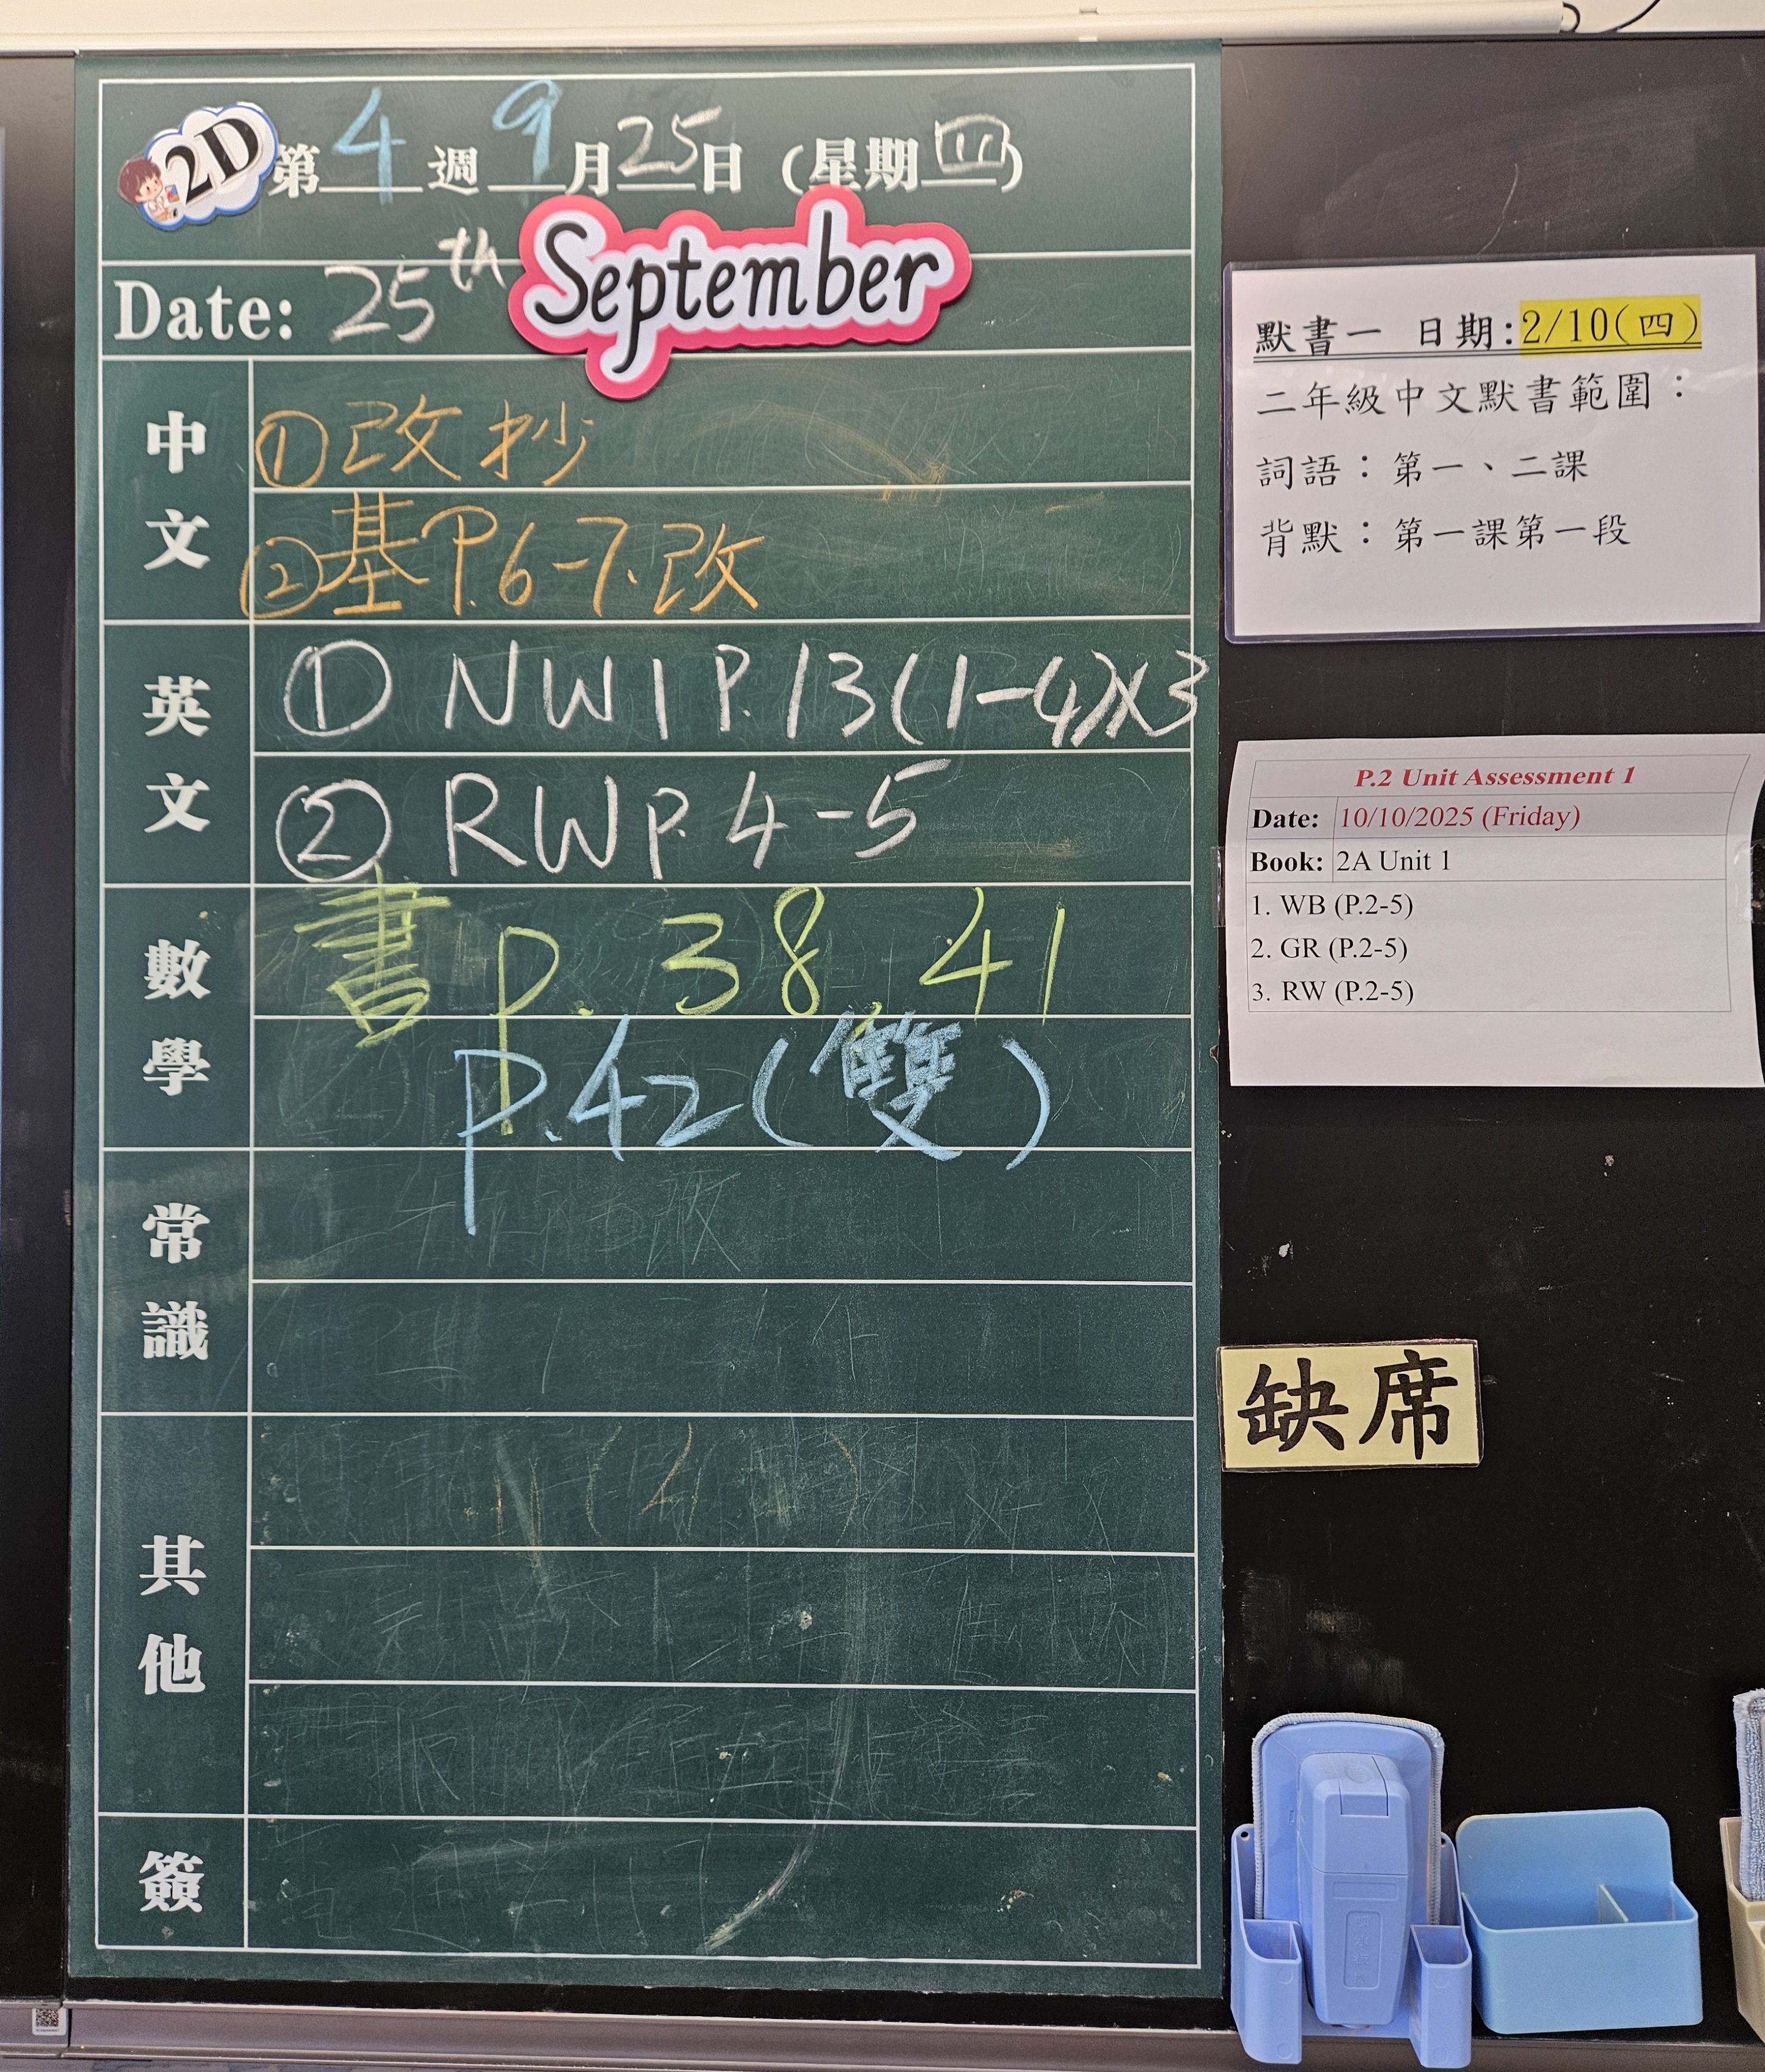 2D 第 4 週 9 月 25 日 (星期 四)
Date: 25th September
中文
①改抄
②基P.6-7.改
英文
① NW1 P.13(1-4)X3
② RW P.4-5
數學
書 P. 38, 41
P.42(雙)
常識
其他
簽
默書一 日期:2/10(四)
二年級中文默書範圍：
詞語：第一、二課
背默：第一課第一段
P.2 Unit Assessment 1
Date: 10/10/2025 (Friday)
Book: 2A Unit 1
1. WB (P.2-5)
2. GR (P.2-5)
3. RW (P.2-5)
缺席